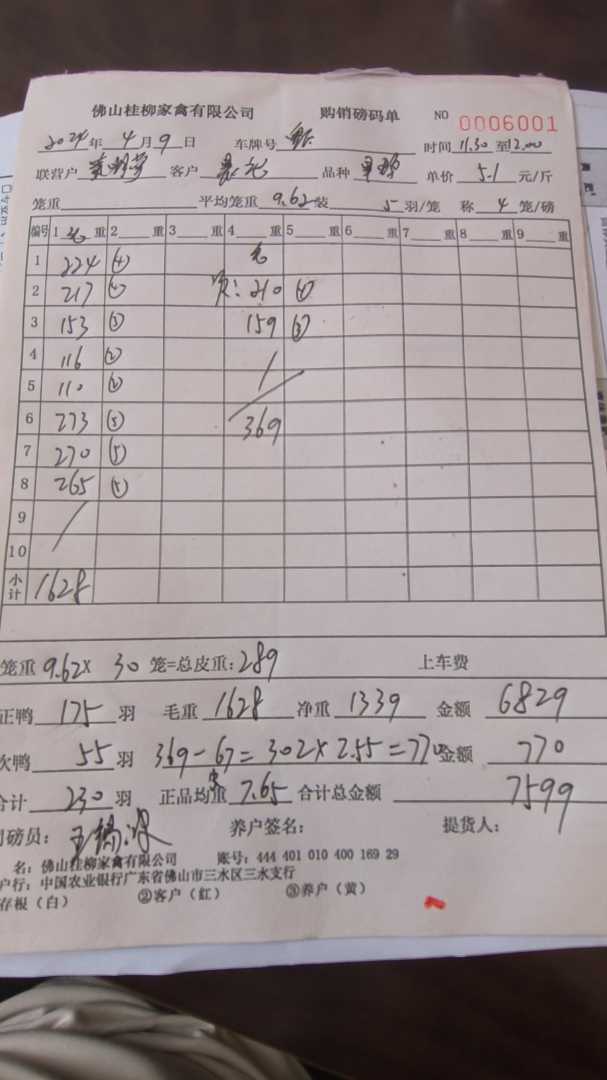 佛山桂柳家禽有限公司 购销磅码单 NO 0006001
2024年 4月 9日 车牌号 时间 11.30 至 12.00
联营户 客户 品种 单价 5.1 元/斤
笼重 平均笼重 9.62 装 5 羽/笼 称 4 笼/磅
编号 1 重 2 重 3 重 4 重 5 重 6 重 7 重 8 重 9 重
1 224 ④
2 217 ④ 次: 210 ④
3 153 ③ 159 ③
4 116 ②
5 110 ②
6 273 ⑤ 369
7 270 ⑤
8 265 ⑤
9
10
小计 1628
笼重 9.62 × 30 笼=总皮重: 289 上车费
正鸭 175 羽 毛重 1628 净重 1339 金额 6829
次鸭 55 羽 369-67=302×2.55=770 金额 770
合计 230 羽 正品均重 7.65 合计总金额 7599
司磅员: 养户签名: 提货人:
名: 佛山桂柳家禽有限公司 账号: 444 401 010 400 169 29
户行: 中国农业银行广东省佛山市三水区三水支行
存根(白) ②客户(红) ③养户(黄)